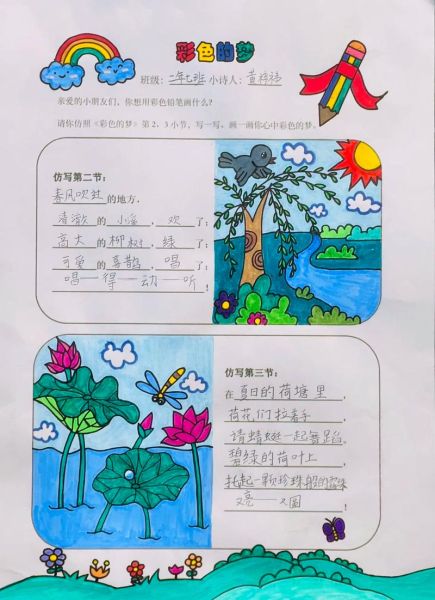 彩色的梦
班级：二年七班 小诗人：黄梓祎
亲爱的小朋友们，你想用彩色铅笔画什么？
请你仿照《彩色的梦》第2、3小节，写一写、画一画你心中彩色的梦。
仿写第二节：
春风吹过的地方，
清澈的小溪，欢了；
高大的柳树，绿了；
可爱的喜鹊，唱了；
唱——得——动——听！
仿写第三节：
在夏日的荷塘里，
荷花们拉着手，
请蜻蜓一起舞蹈。
碧绿的荷叶上，
托起一颗珍珠般的露珠
又亮——又圆！